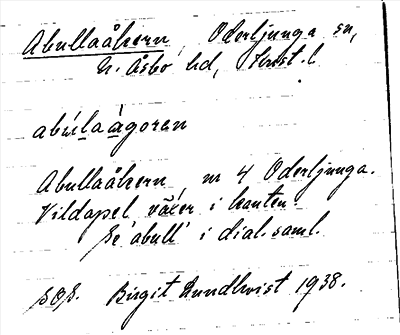 Abullaåkern, Oderljunga sn,
N. Åsbo hd, Krist. l
abúlaàgoren
Abullaåkern, nr 4 Oderljunga.
Vildapel växer i kanten.
Se 'abull' i dial. saml.
SOS. Birgit Lundkvist 1938.